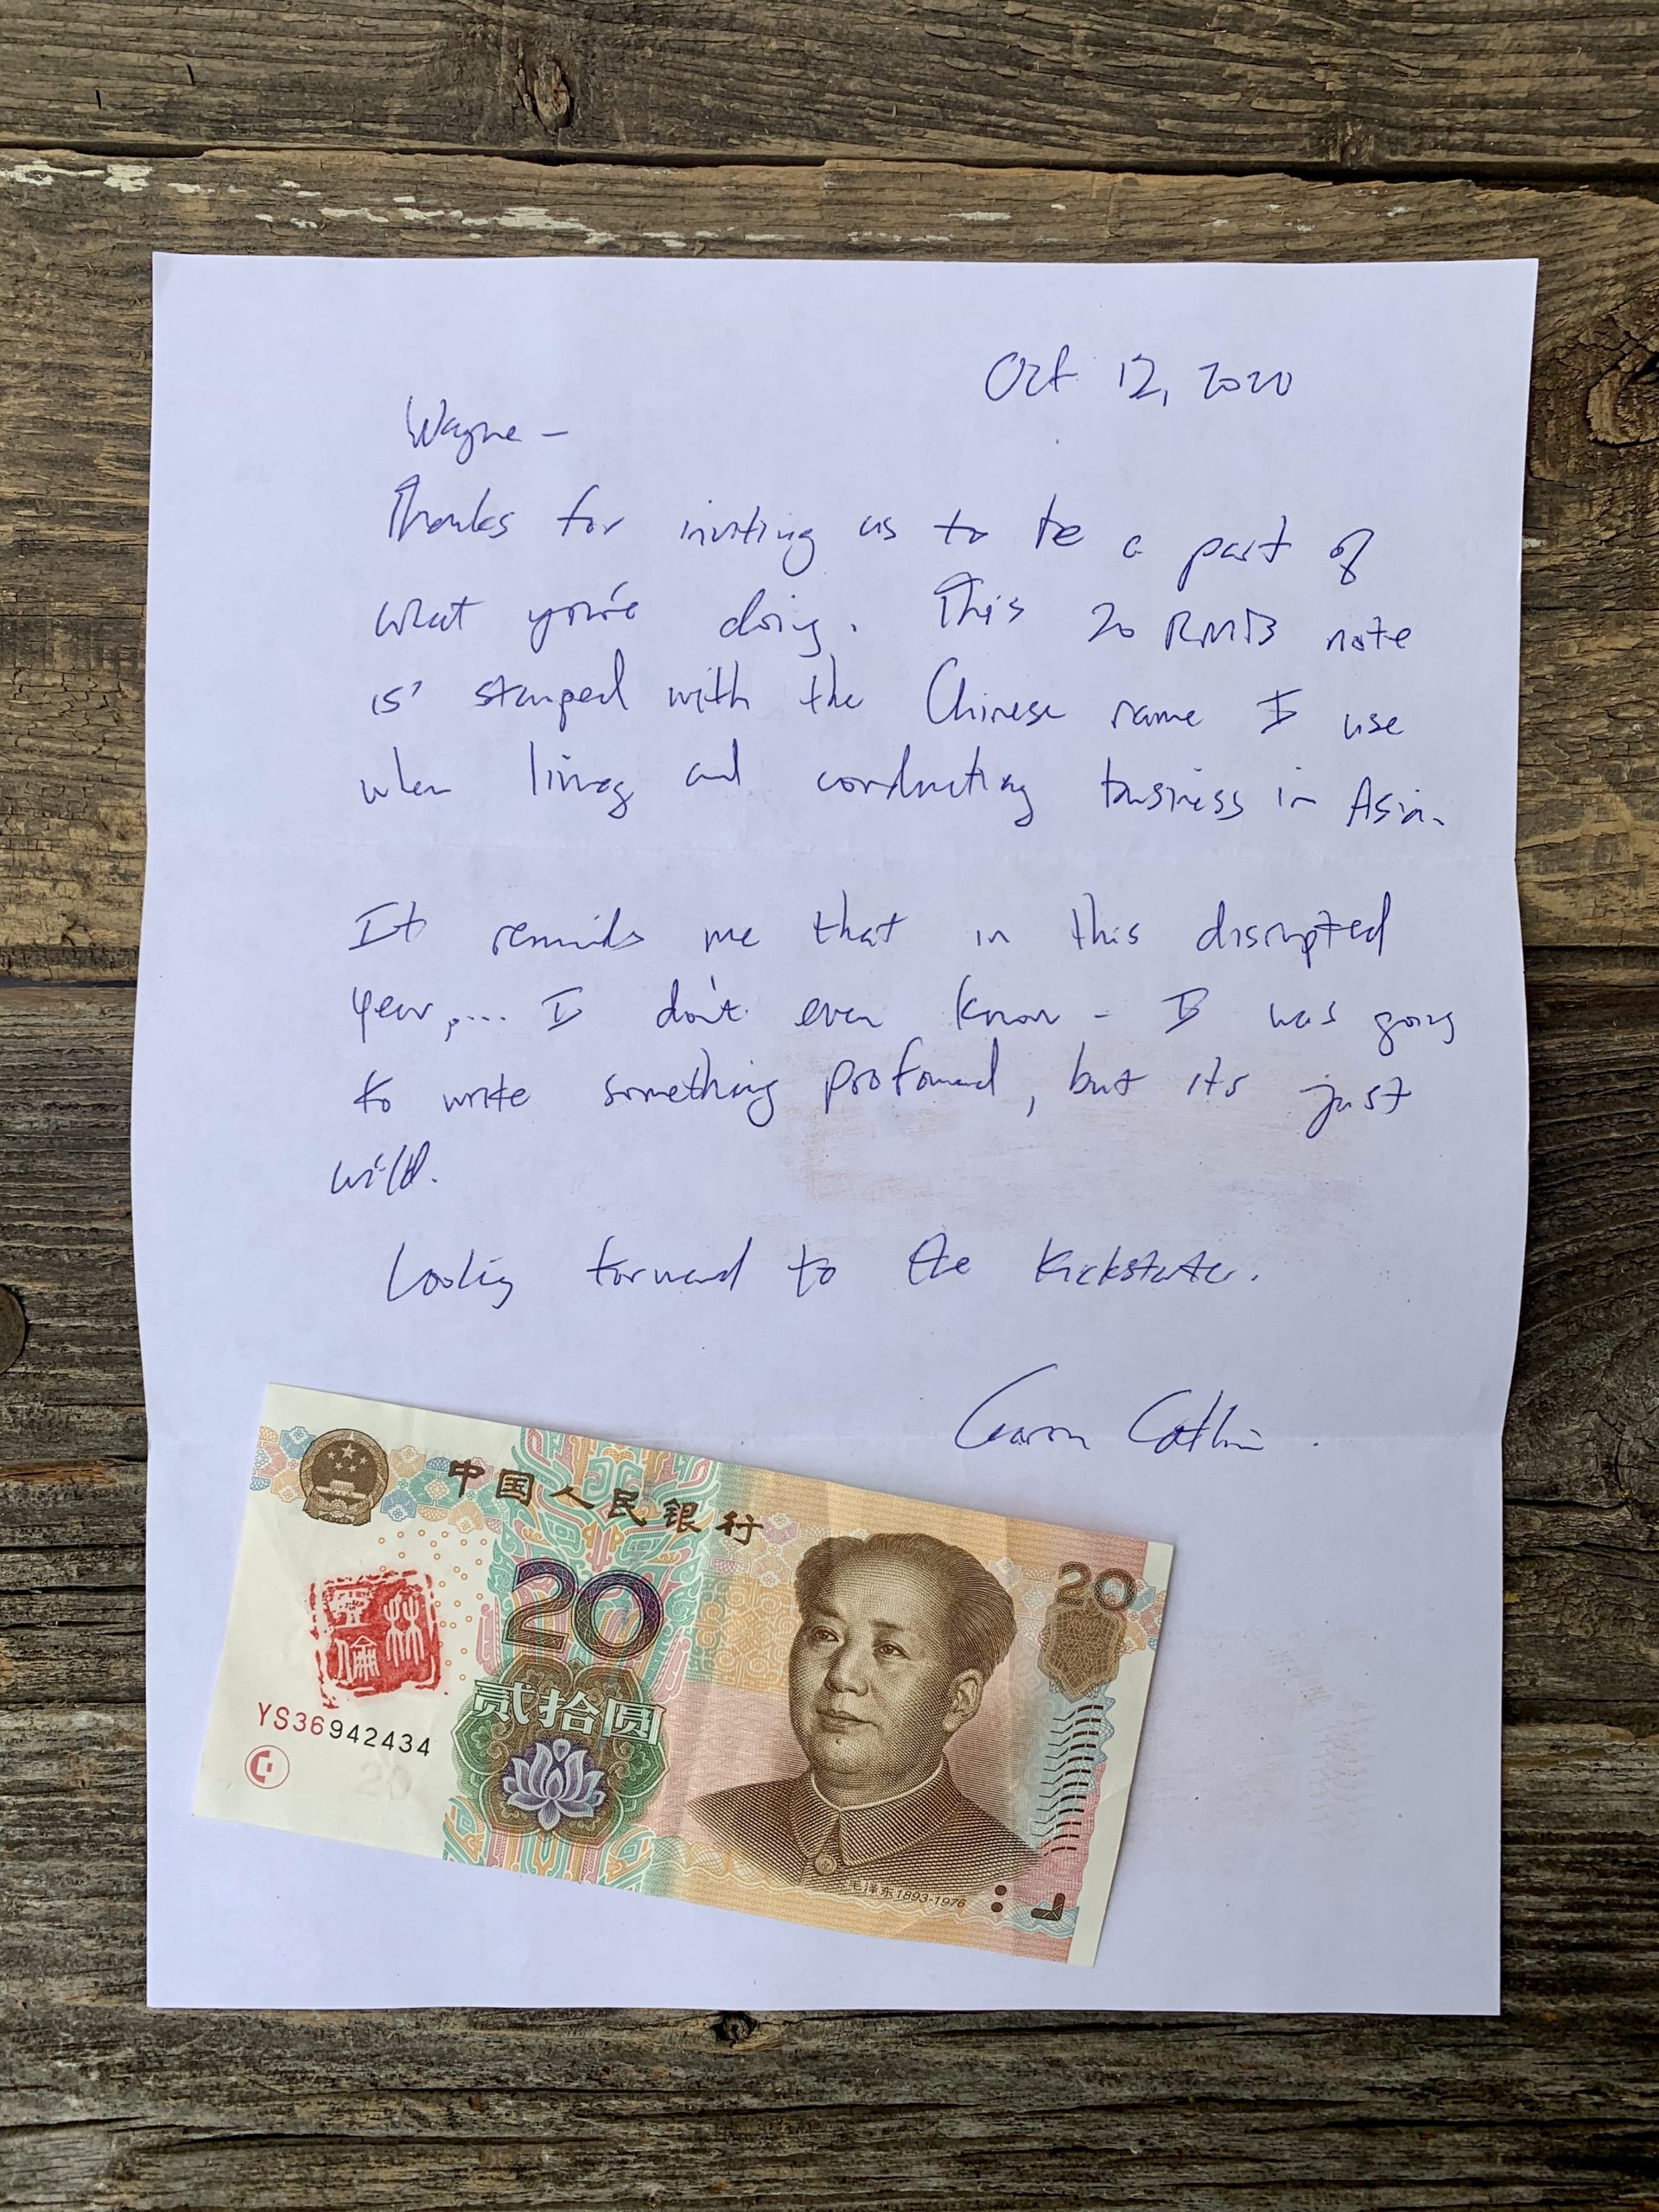 Oct 12, 2020
Wayne –
Thanks for inviting us to be a part of
what you're doing. This 20 RMB note
is stamped with the Chinese name I use
when living and conducting business in Asia.
It reminds me that in this disrupted
year,.... I don't even know – I was going
to write something profound, but its just
wild.
Looking forward to the Kickstarter.
中国人民银行
20
20
林
倫
贰拾圆
YS36942434
20
毛泽东1893-1976